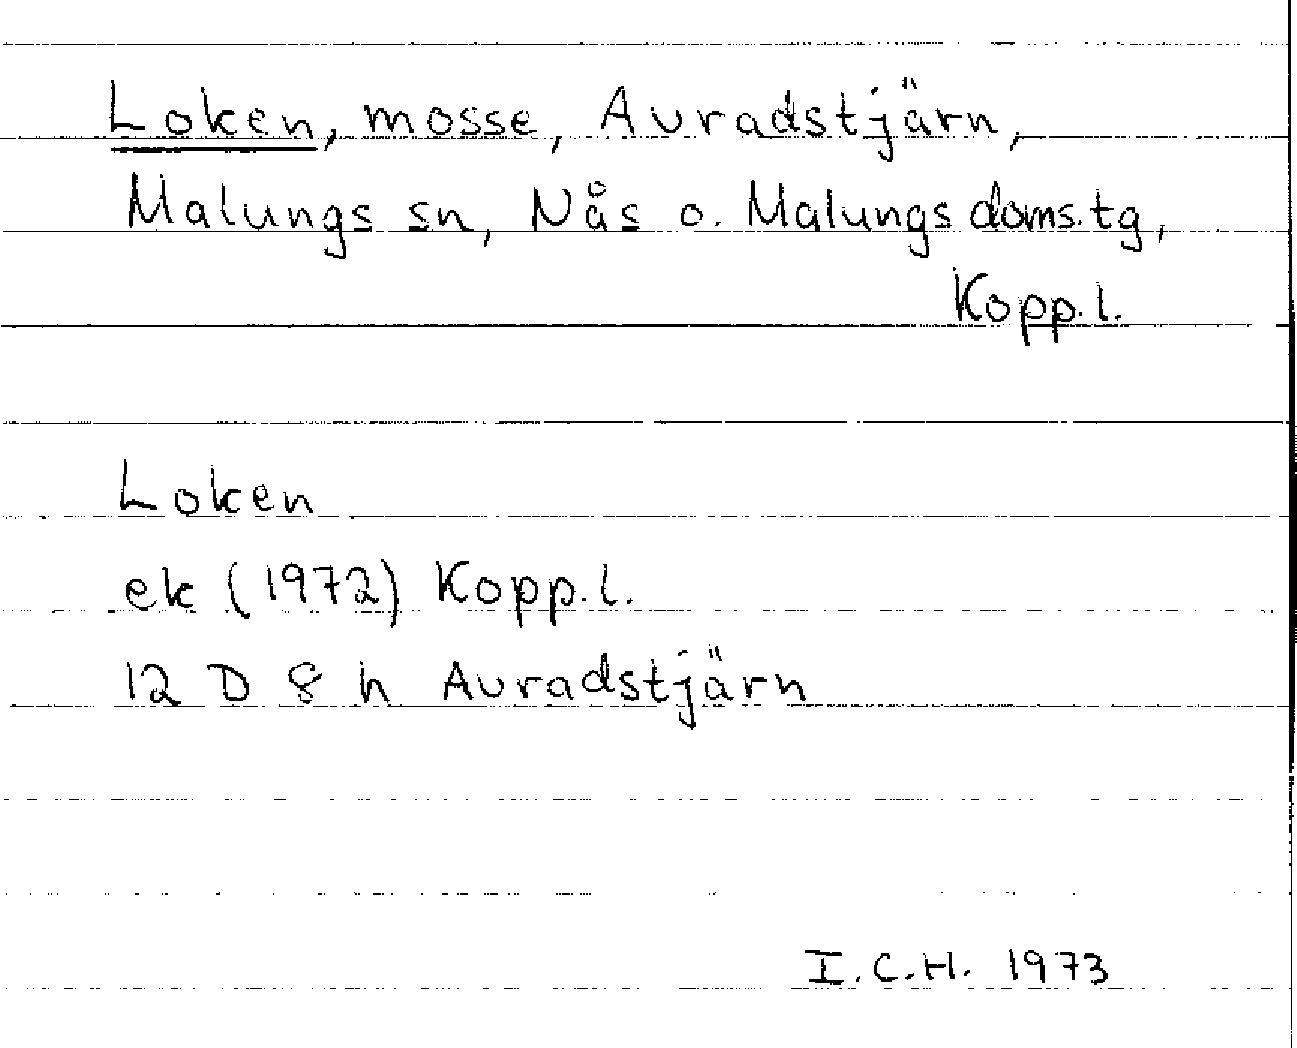 Loken, mosse, Auradstjärn,
Malungs sn, Nås o. Malungs doms.tg,
Kopp.l.
Loken
ek (1972) Kopp.l.
12 D 8 h Auradstjärn
I.C.H. 1973